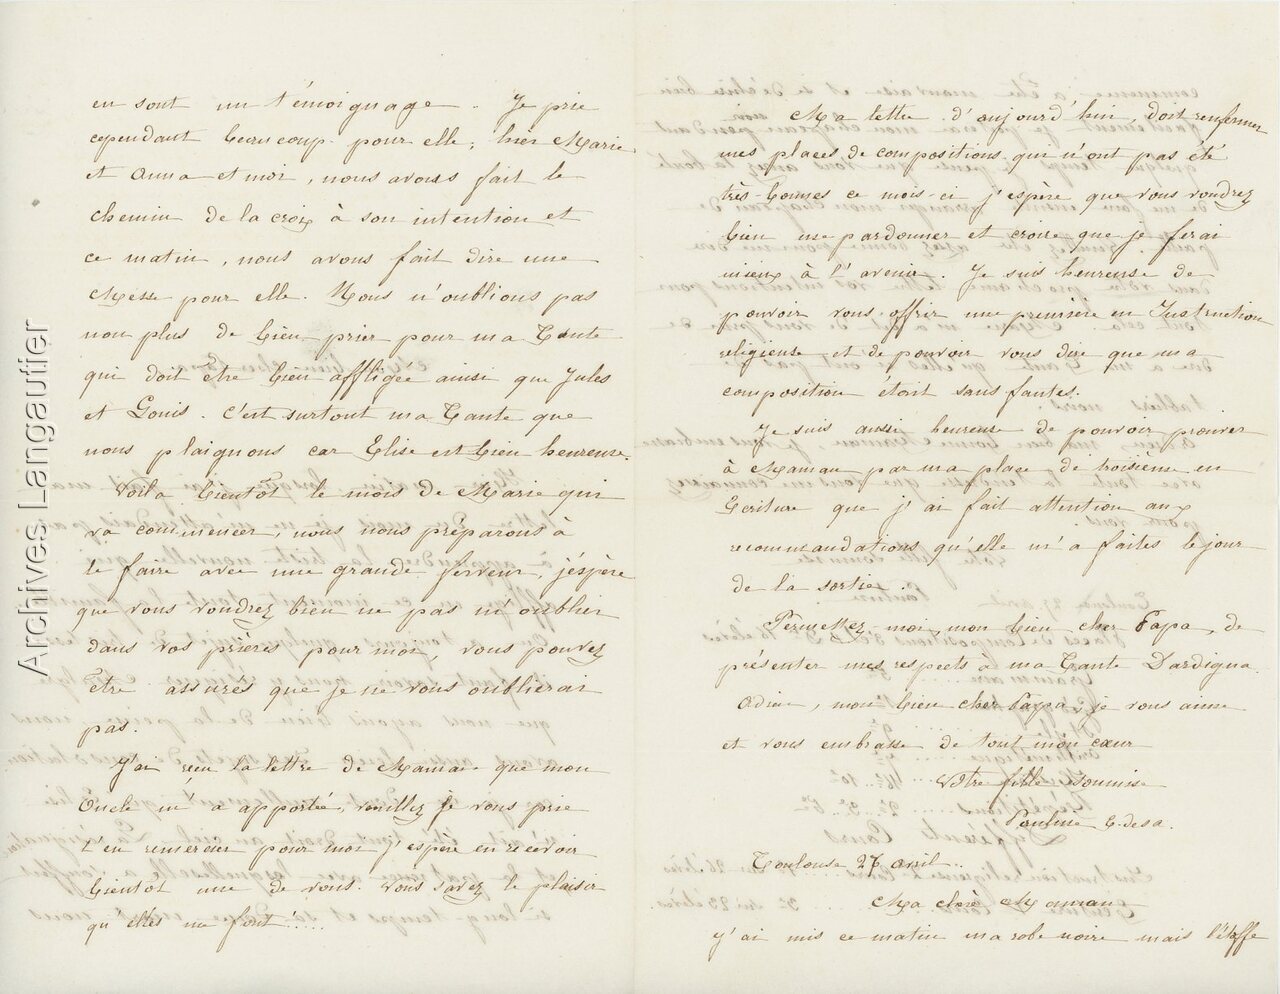 en sont un témoignage. Je prie
cependant beaucoup pour elle, hier Marie
et Anna et moi, nous avons fait le
chemin de la croix à son intention et
ce matin, nous avons fait dire une
Messe pour elle. Nous n'oublions pas
non plus de bien prier pour ma Tante
qui doit être bien affligée ainsi que Jules
et Louis. C'est surtout ma Tante que
nous plaignons car Elise est bien heureuse.
Voila bientôt le mois de Marie qui
va commencer, nous nous préparons à
le faire avec une grande ferveur, j'éspère
que vous voudrez bien ne pas m'oublier
dans vos prières pour moi, vous pouvez
être assurés que je ne vous oublierai
pas.
J'ai reçu la lettre de Maman que mon
Oncle m'a apportée, veuillez je vous prie
l'en remercier pour moi j'espère en recevoir
bientôt une de vous. Vous savez le plaisir
qu'elles me font.....
Ma lettre d'aujourd'hui, doit renfermer
mes places de compositions qui n'ont pas été
très-bonnes ce mois-ci j'espère que vous voudrez
bien me pardonner et croire que je ferai
mieux à l'avenir. Je suis heureuse de
pouvoir vous offrir une première en Instruction
religieuse et de pouvoir vous dire que ma
composition était sans fautes.
Je suis aussi heureuse de pouvoir prouver
à Maman par ma place de troisième en
Ecriture que j'ai fait attention aux
recommandations qu'elle m'a faites le jour
de la sortie.
Permettez-moi, mon bien cher Papa, de
présenter mes respects à ma Tante Dardigna
Adieu, mon bien cher Papa; je vous aime
et vous embrasse de tout mon cœur
Votre fille soumise
Pauline
Toulouse 27 avril..
Ma chère Maman
J'ai mis ce matin ma robe noire mais l'étoffe
Archives Langautier